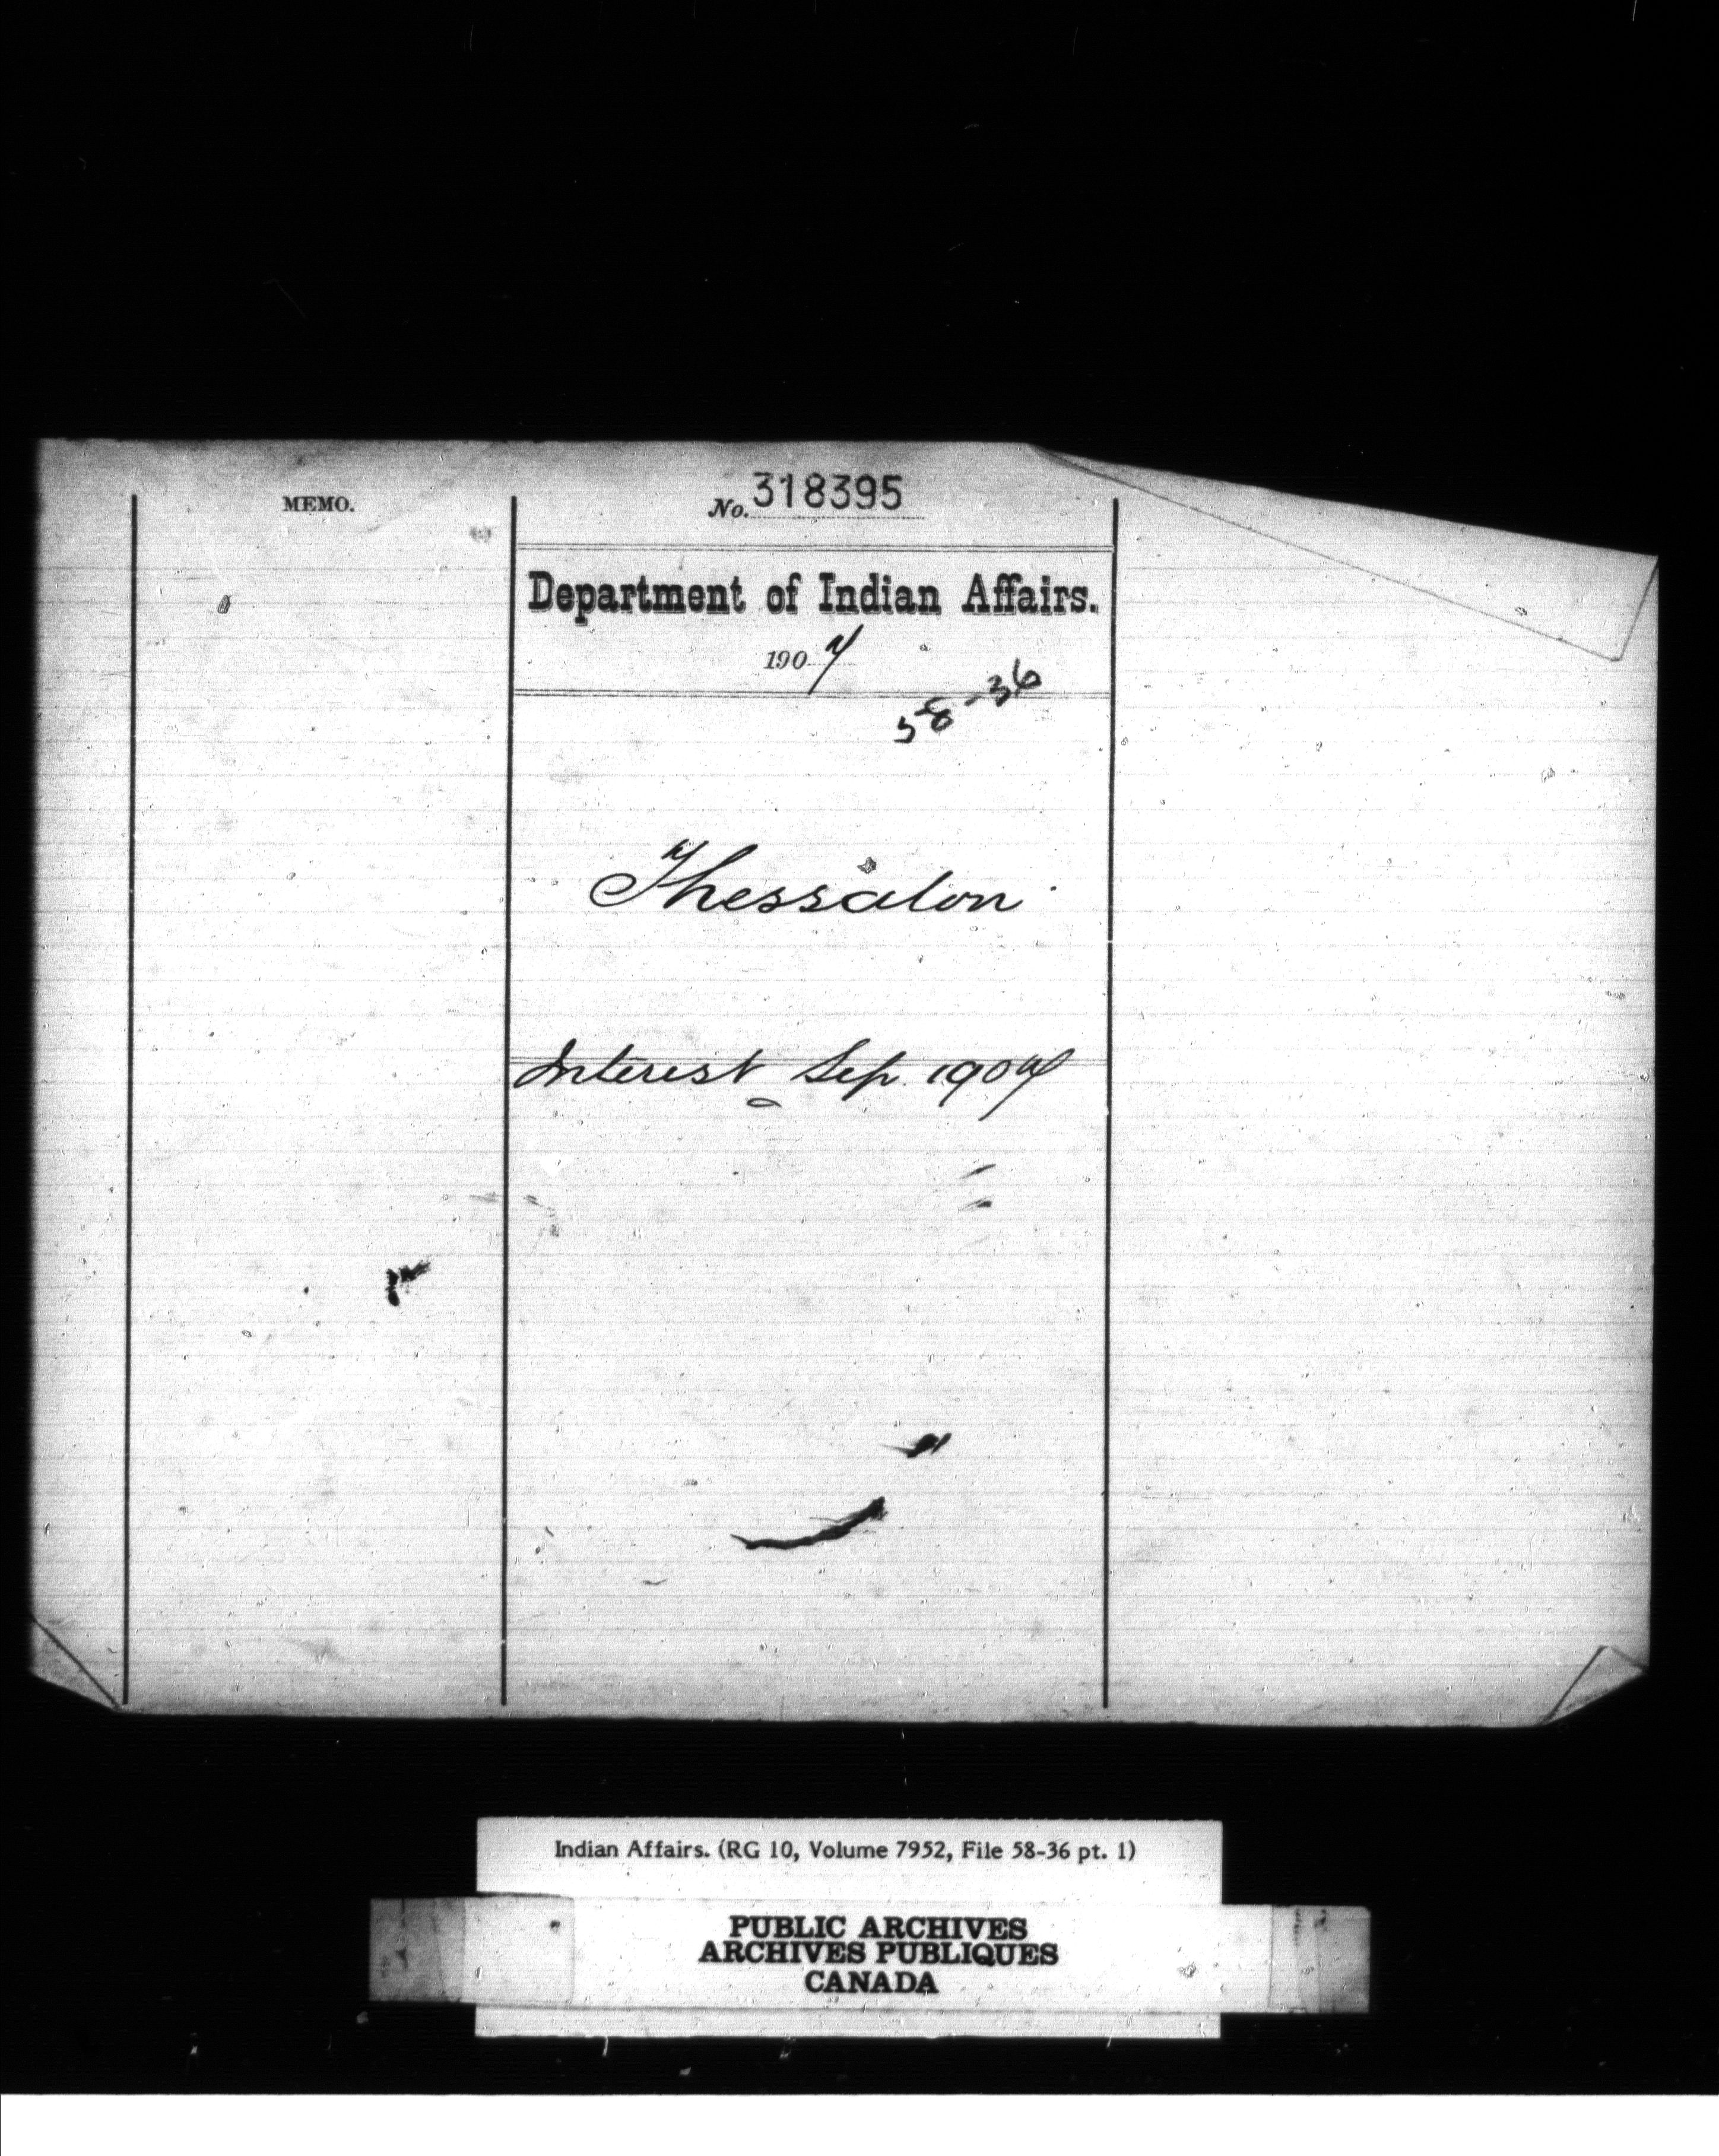 MEMO.
No. 318395
Department of Indian Affairs.
1907
58-36
Thessalon
Interest Sep. 1907
Indian Affairs. (RG 10, Volume 7952, File 58-36 pt. 1)
PUBLIC ARCHIVES
ARCHIVES PUBLIQUES
CANADA